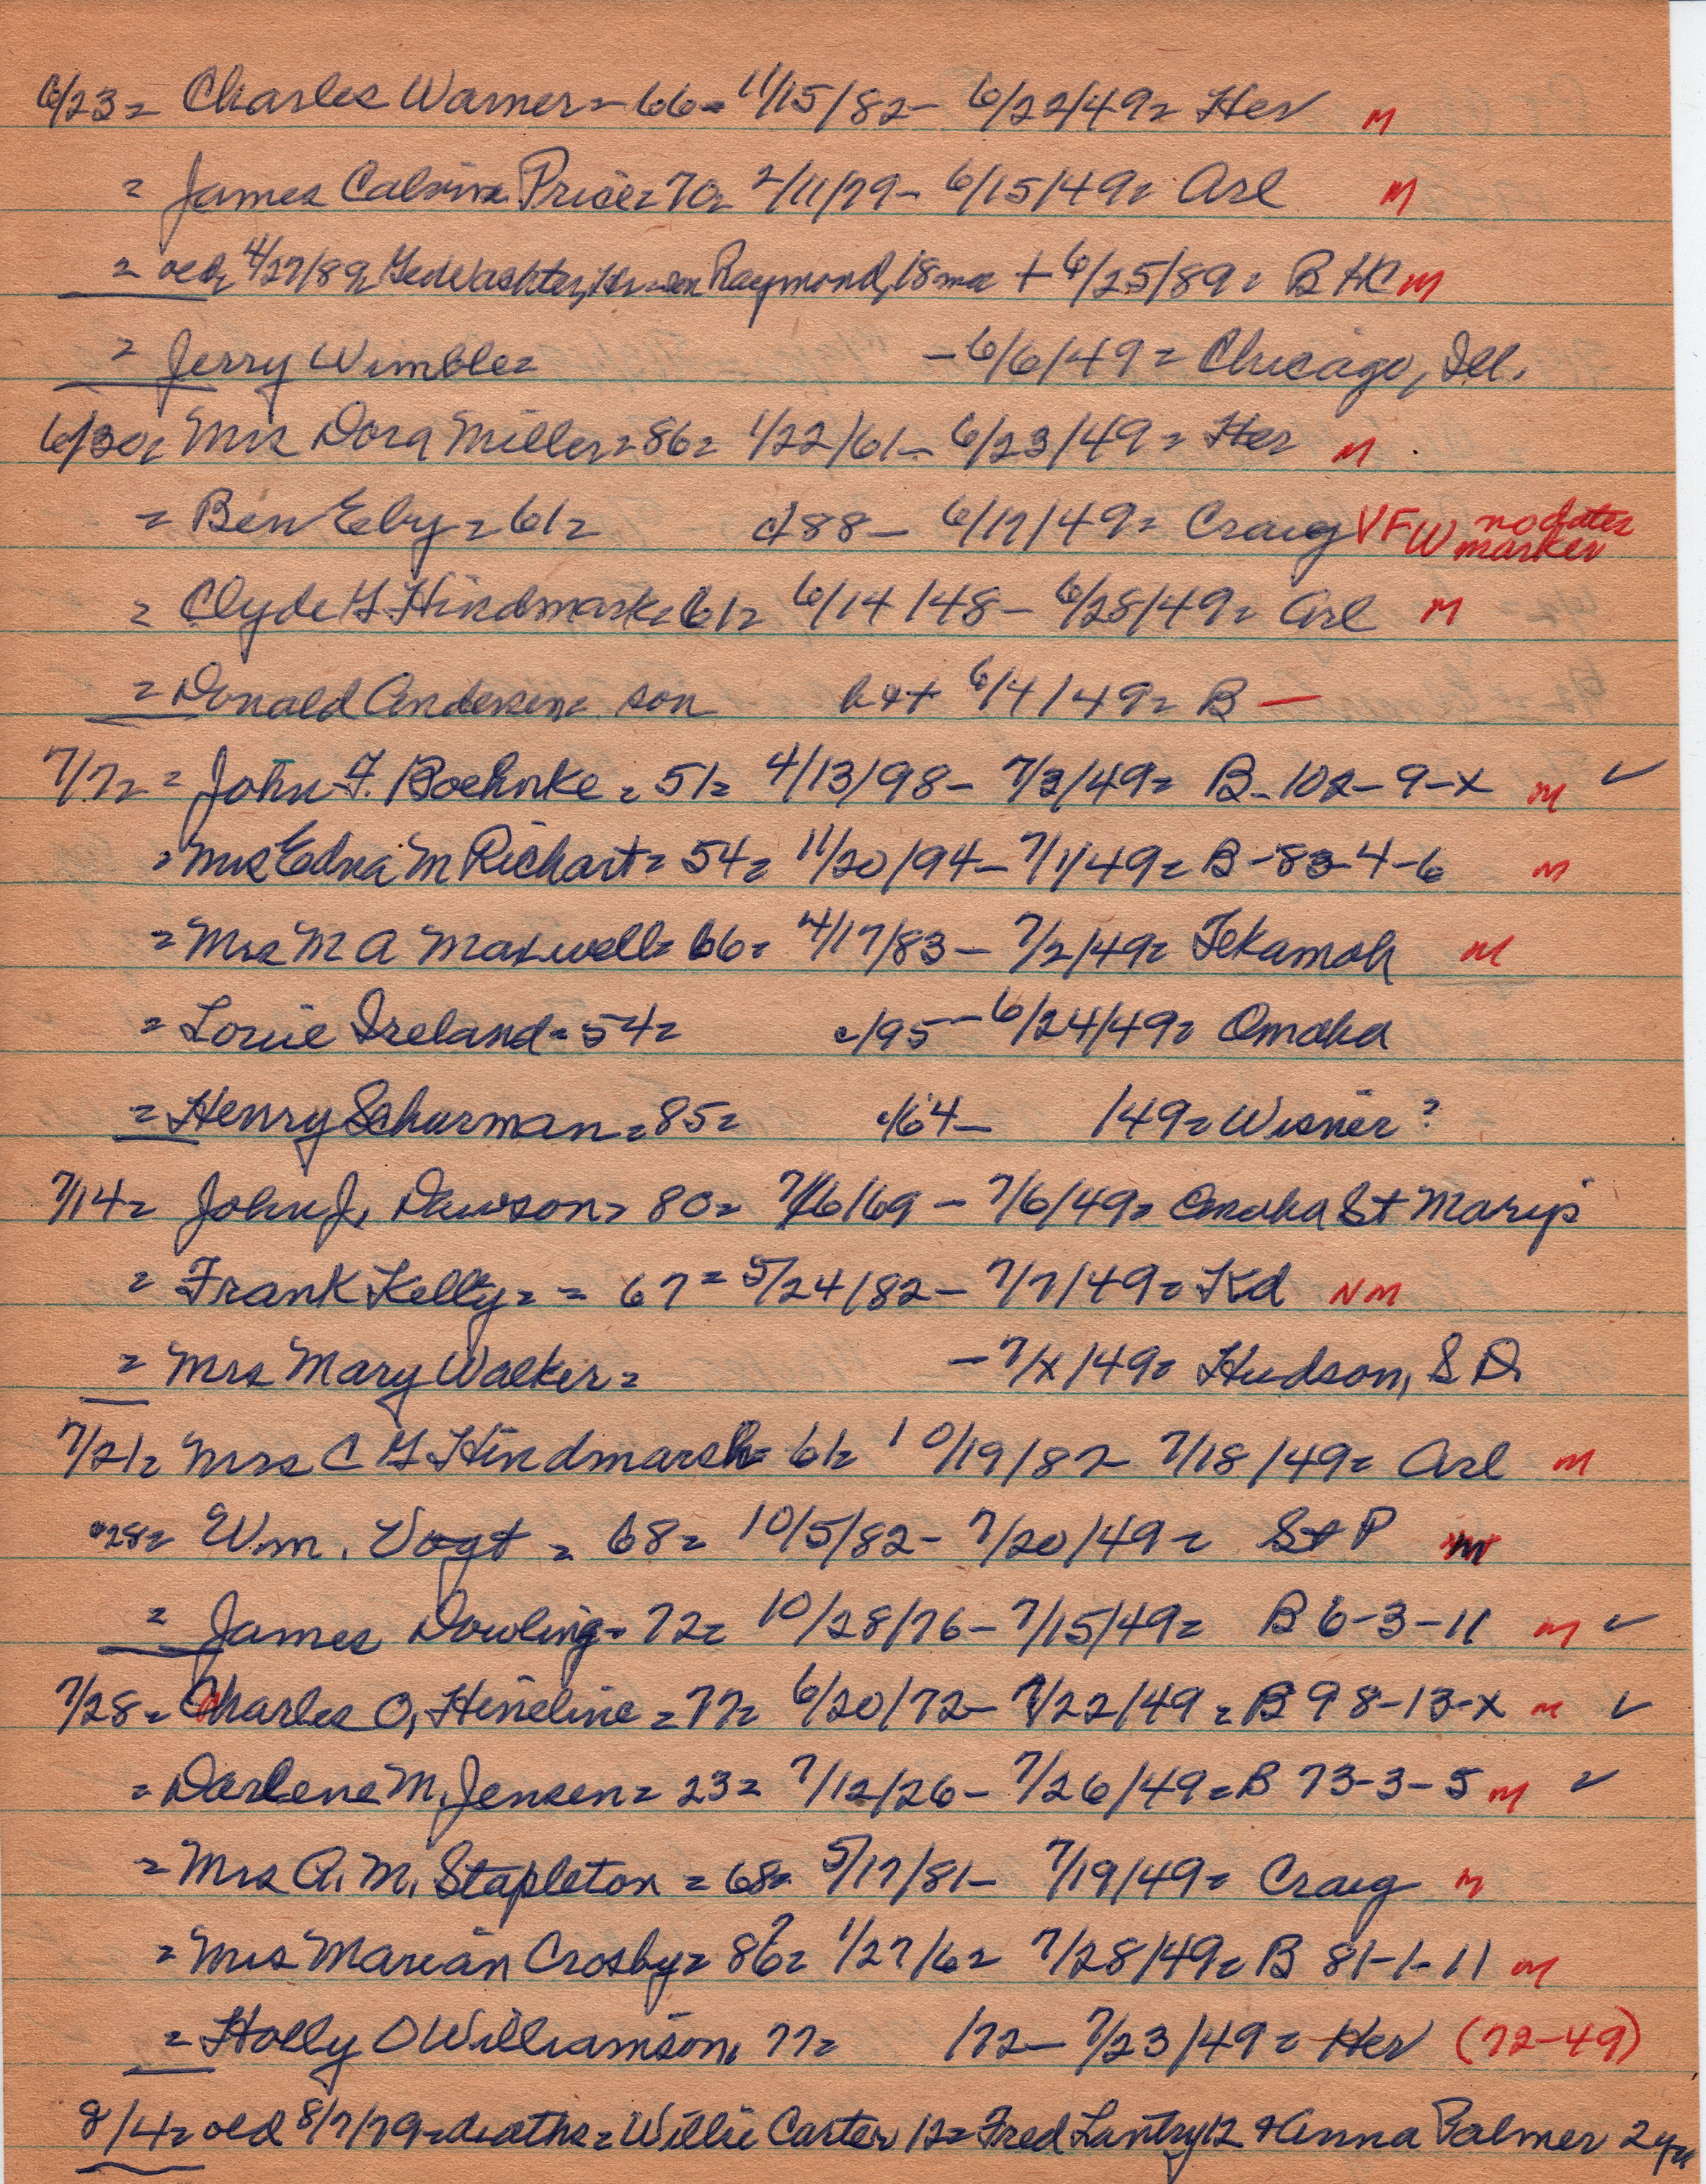 6/23= Charles Warner = 66 = 11/15/82 - 6/22/49 = Her M
= James Calvin Price = 70 = 2/11/79 - 6/15/49 = Arl M
= old, 4/27/89, Raymond, 18 mo + 6/25/89 = B HC M
= Jerry Wimble = - 6/6/49 = Chicago, Ill.
6/30= Mrs Dora Miller = 86 = 1/22/61 - 6/23/49 = Her M
= Ben Eby = 61 = c/88 - 6/17/49 = Craig VFW no dates marker
= Clyde G Hindmarsh = 61 = 6/14/48 - 6/28/49 = Arl M
= Donald Andersen = son b x + 6/4/49 = B -
7/7= = John F. Boehnke = 51 = 4/13/98 - 7/3/49 = B - 102 - 9 - x M ✓
= Mrs Edna M Richart = 54 = 11/20/94 - 7/1/49 = B - 83-4-6 M
= Mrs M A Maxwell = 66 = 4/17/83 - 7/2/49 = Tekamah M
= Louie Ireland = 54 = c/95 - 6/24/49 = Omaha
= Henry Schurman = 85 = c/64 - /49 = Wisner ?
7/14= John J. Dawson = 80 = 7/16/69 - 7/6/49 = Omaha St Mary's
= Frank Kelly = = 67 = 5/24/82 - 7/7/49 = Kd NM
= Mrs Mary Walker = - 7/x/49 = Hudson, S D.
7/21= Mrs C G Hindmarsh = 61 = 10/19/87 - 7/18/49 = Arl M
28= Wm. Vogt = 68 = 10/5/82 - 7/20/49 = St P M
= James Dowling = 72 = 10/28/76 - 7/15/49 = B 6-3-11 M ✓
7/28= Charles O. Hineline = 77 = 6/20/72 - 7/22/49 = B 98-13-x M ✓
= Darlene M. Jensen = 23 = 7/12/26 - 7/26/49 = B 73-3-5 M ✓
= Mrs A. M. Stapleton = 68 = 5/17/81 - 7/19/49 = Craig M
= Mrs Marian Crosby = 86? = 1/27/62 7/28/49 = B 81-1-11 M
= Holly O Williamson, 77 = /72 - 7/23/49 = Her (72-49)
8/4= old 8/7/79 = deaths = Willie Carter 12 = Fred Lantry 12 + Anna Palmer 2 yrs